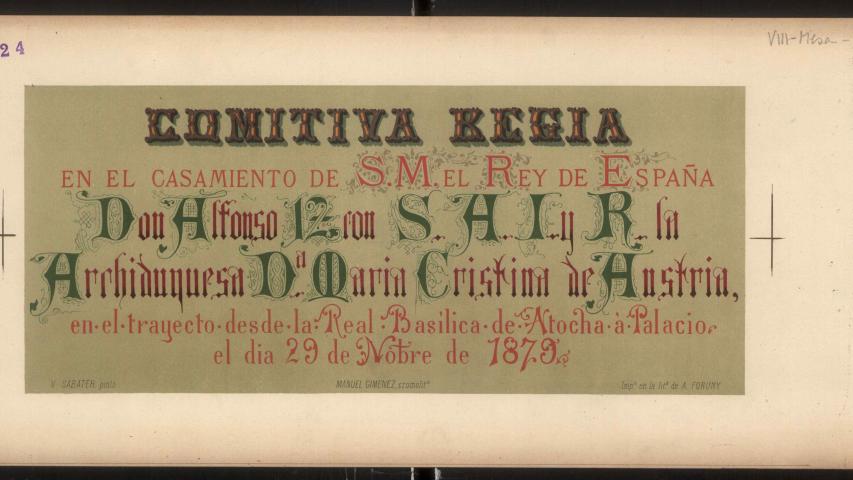 24
VIII-Mesa-
COMITIVA REGIA
EN EL CASAMIENTO DE S.M. EL REY DE ESPAÑA
Don Alfonso 12 con S. A. I. y R. la
Archiduquesa D.ª Maria Cristina de Austria,
en·el·trayecto·desde·la·Real·Basilica·de·Atocha·à·Palacio
el dia 29 de Nobre de 1879.
V. SABATER, pintó
MANUEL GIMENEZ, cromolitº
Impº en la litª de A. FORUNY